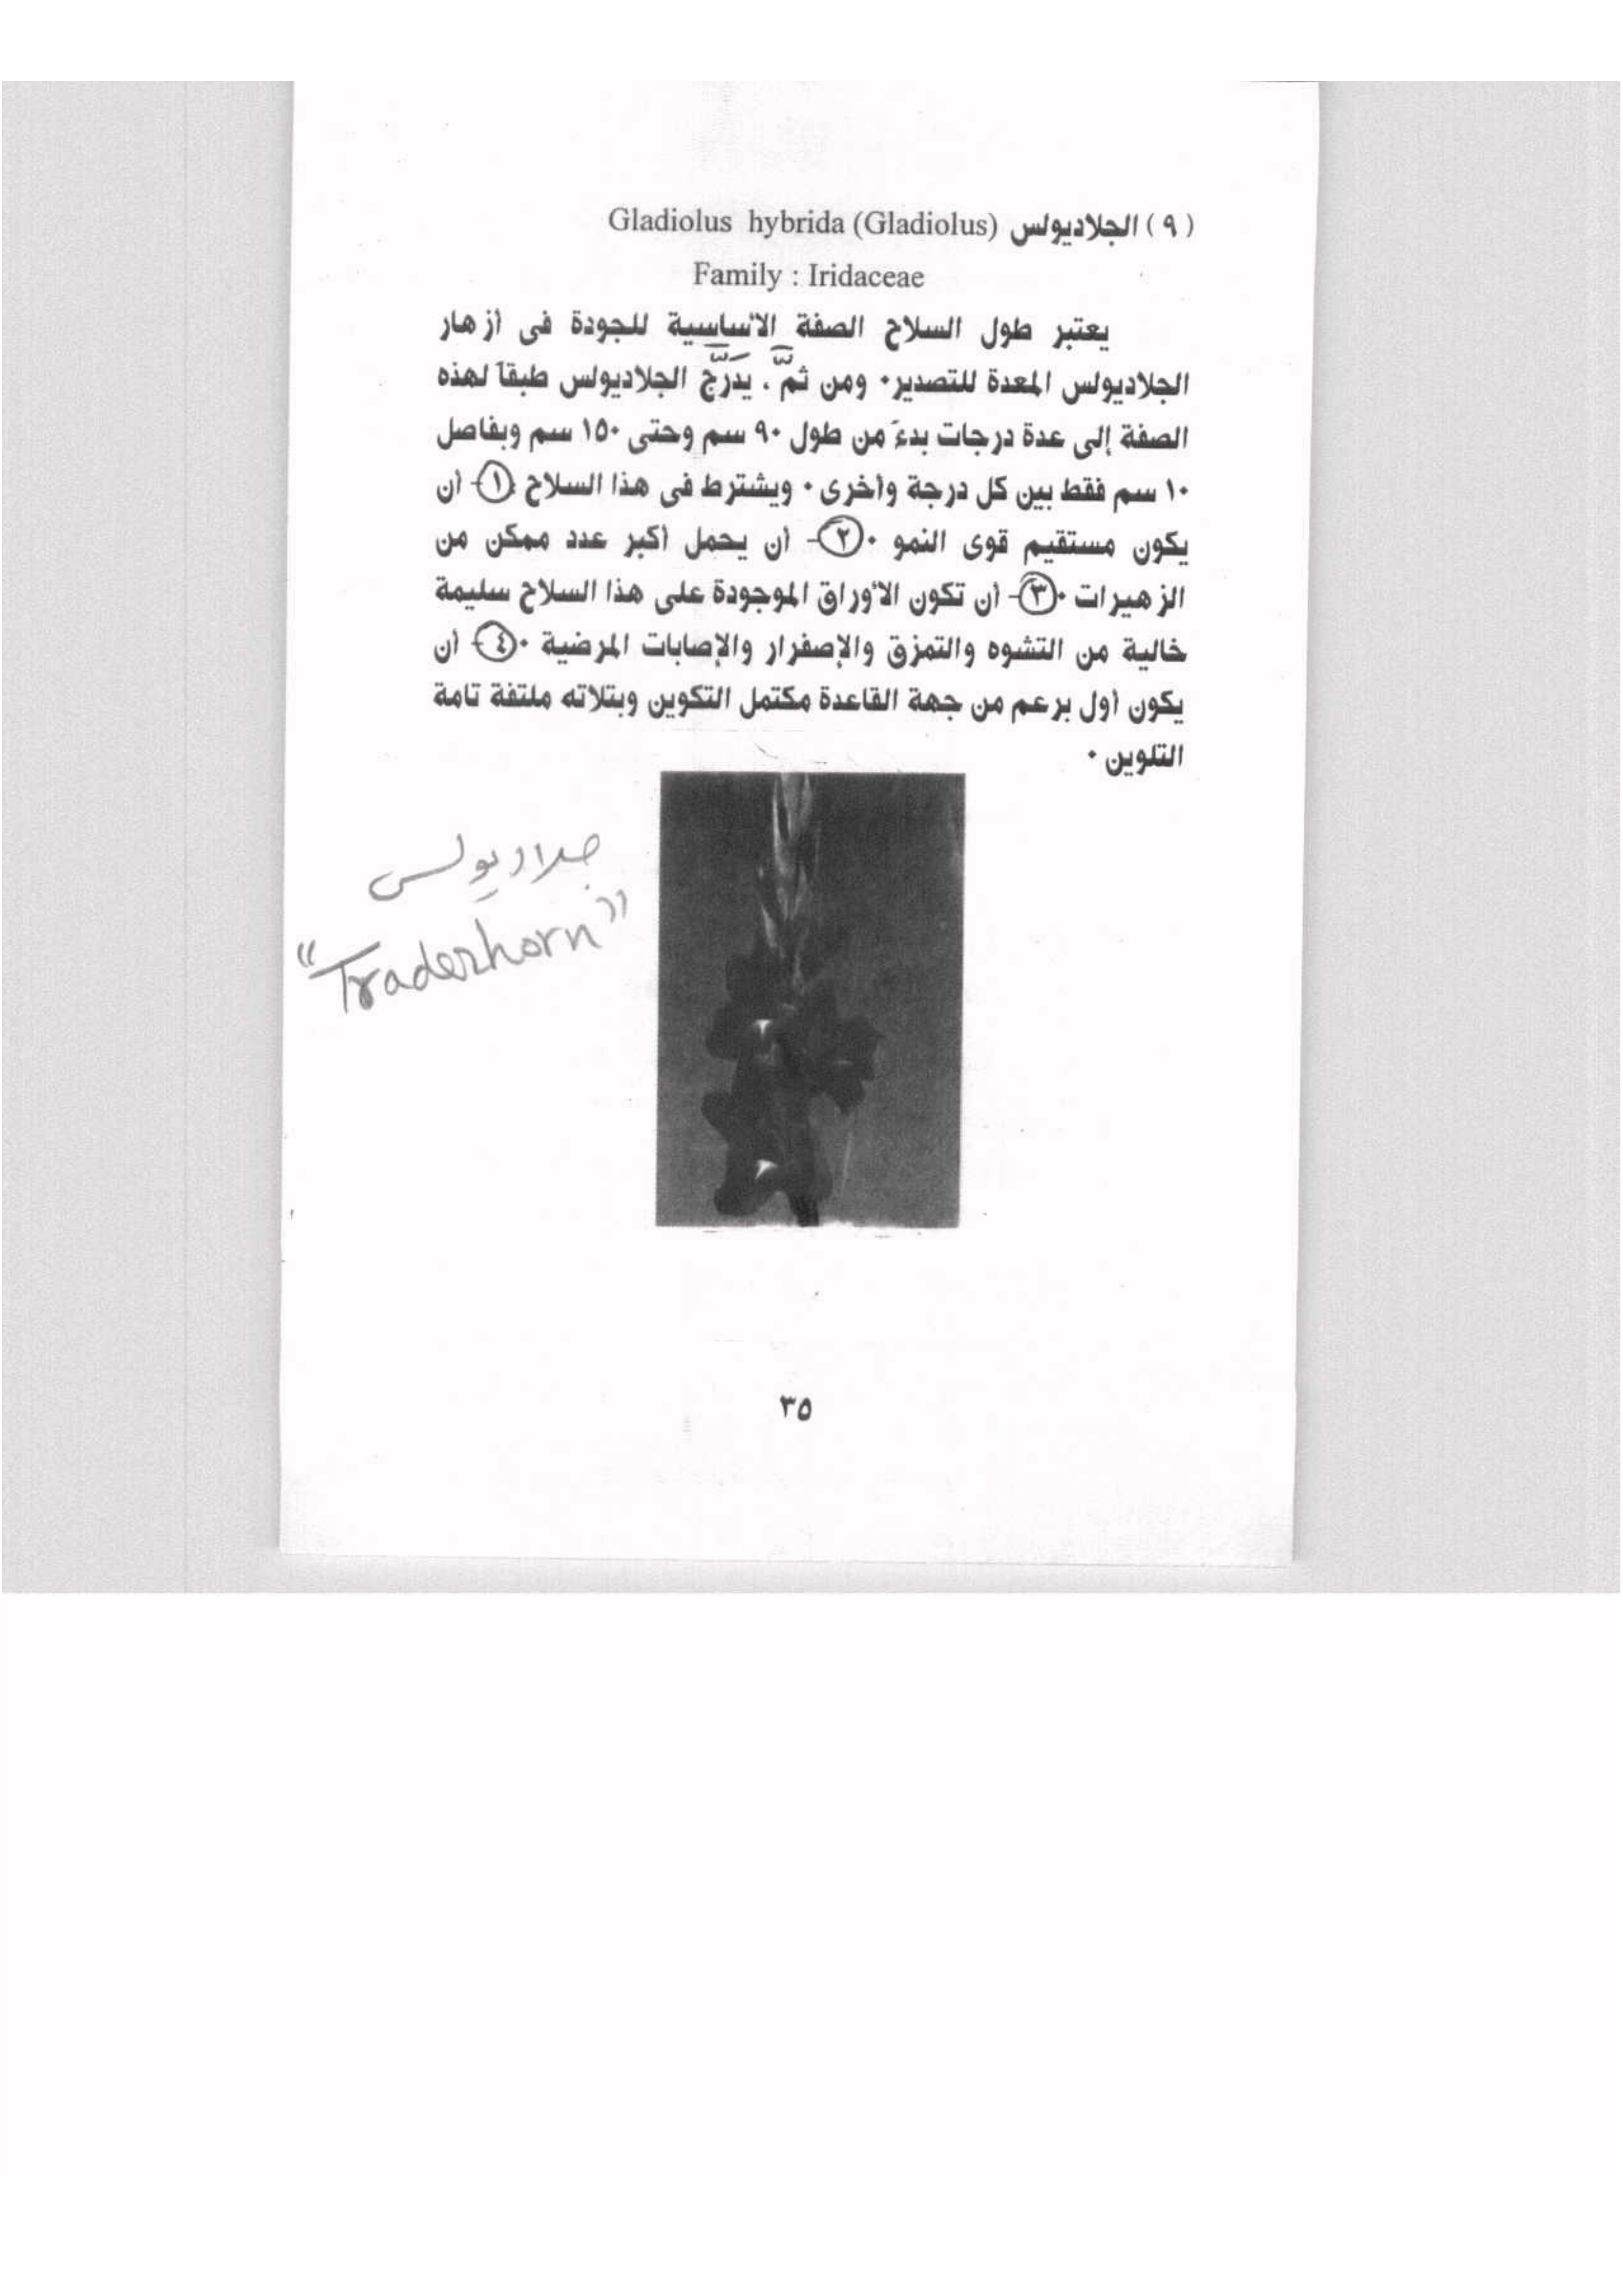 ( ٩ ) الجلاديولس Gladiolus hybrida (Gladiolus)
Family : Iridaceae
يعتبر طول السلاح الصفة الأساسية للجودة فى أزهار
الجلاديولس المعدة للتصدير٠ ومن ثمَّ ، يدرَّج الجلاديولس طبقاً لهذه
الصفة إلى عدة درجات بدءً من طول ٩٠ سم وحتى ١٥٠ سم وبفاصل
١٠ سم فقط بين كل درجة وأخرى ٠ ويشترط فى هذا السلاح ١- أن
يكون مستقيم قوى النمو ٠ ٢- أن يحمل أكبر عدد ممكن من
الزهيرات ٠ ٣- أن تكون الأوراق الموجودة على هذا السلاح سليمة
خالية من التشوه والتمزق والإصفرار والإصابات المرضية ٠ ٤- أن
يكون أول برعم من جهة القاعدة مكتمل التكوين وبتلاته ملتفة تامة
التلوين ٠
جلاديولس
"Traderhorn"
٣٥